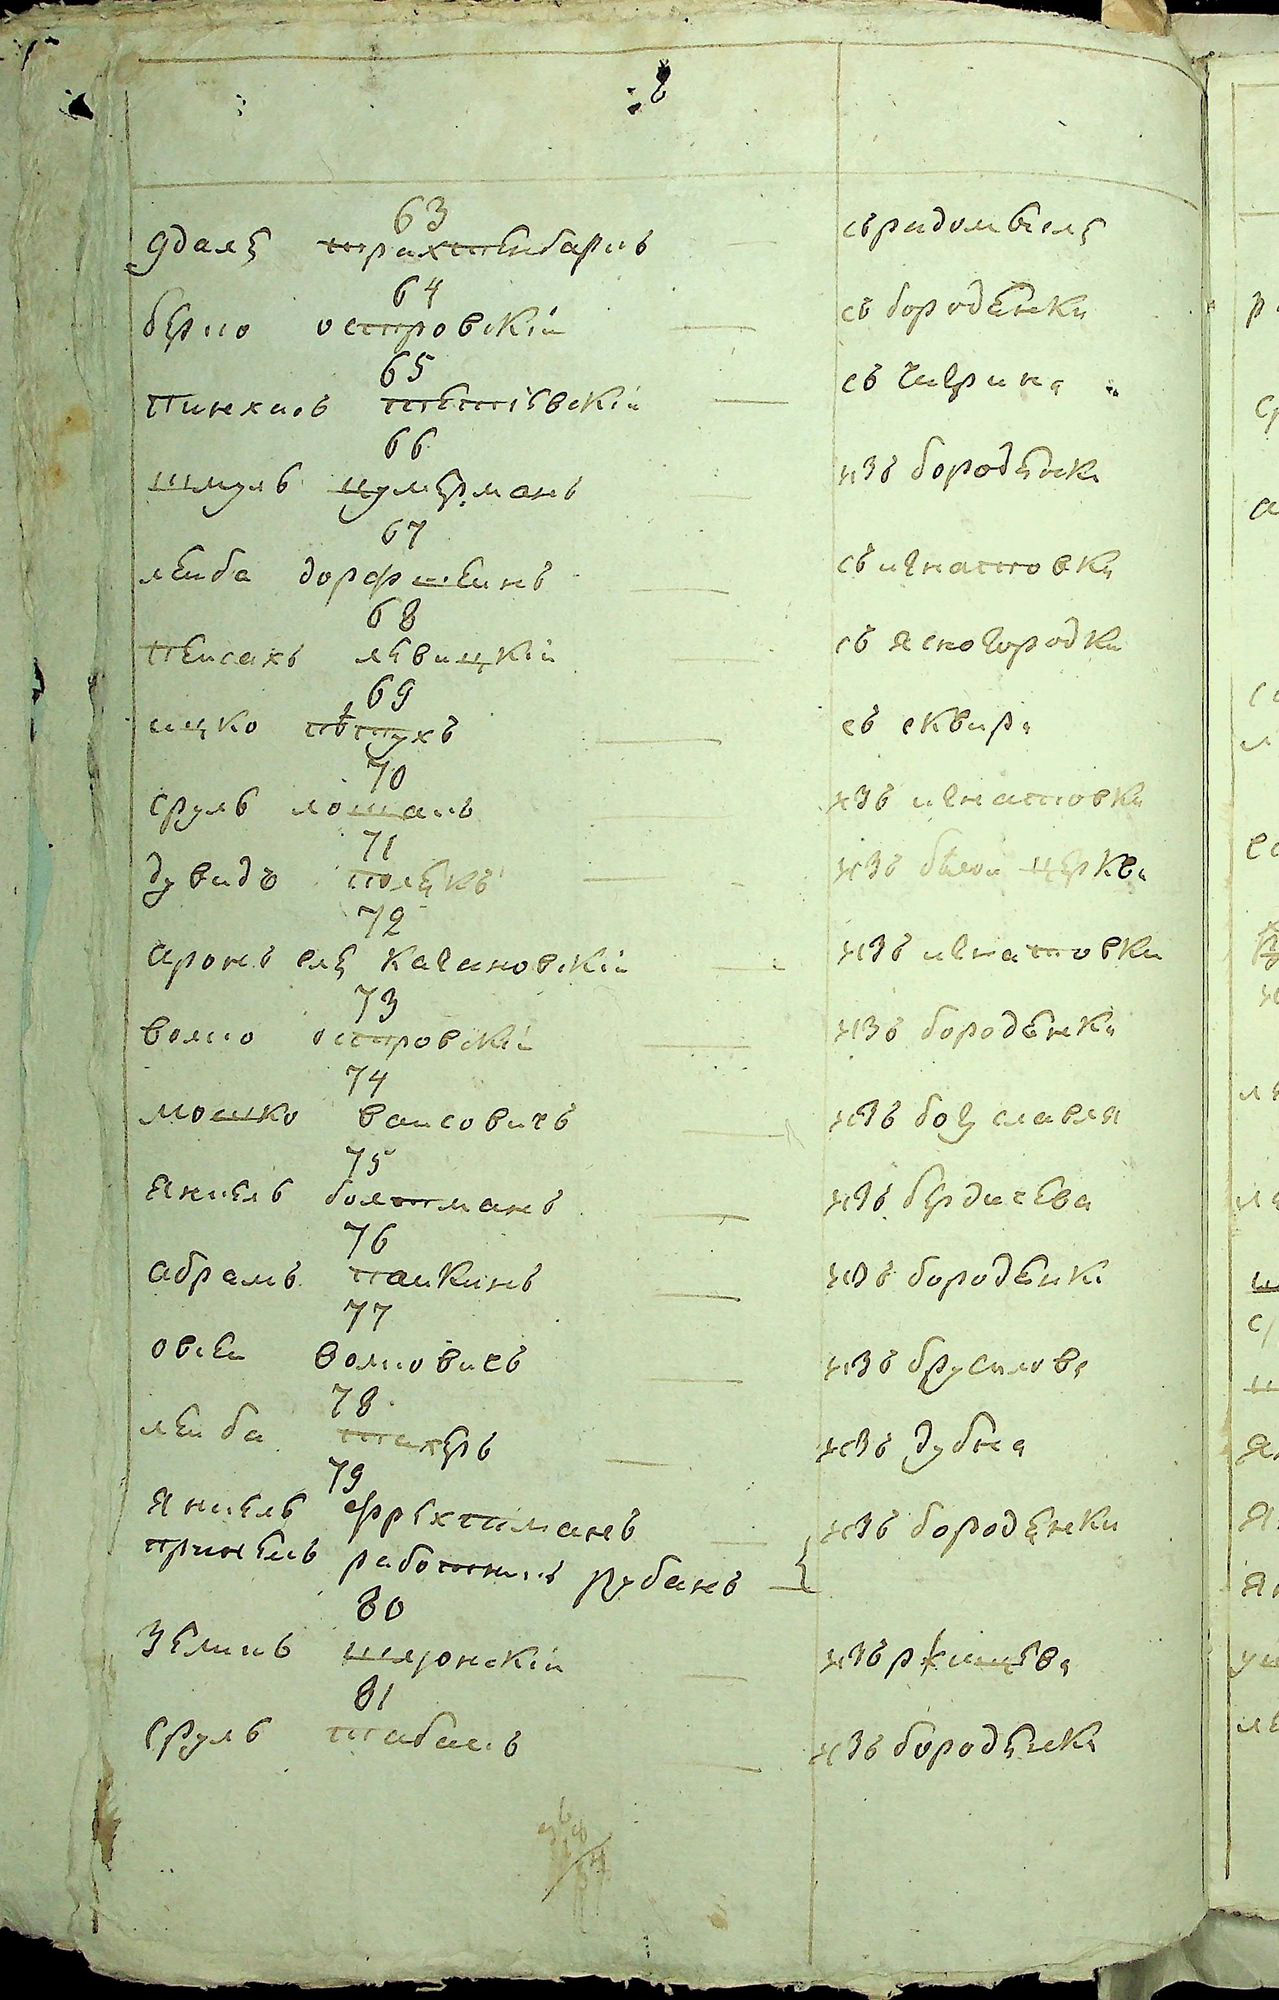 : 2
63
удаля трихтенбарнъ съ радомвеля
64
берко островскій съ бороденки
65
пинхасъ тетіевскій съ чигрина
66
шмуль цумерманъ изъ бороденки
67
лейба дорфшеинъ съ игнатовки
68
пейсахъ левицкій съ ясногородки
69
ицко пѣтухъ съ сквира
70
сруль лошакъ изъ игнатовки
71
дувидъ полекъ изъ белои церкви
72
аронъ еля качановскій изъ игнатовки
73
волко островскій изъ бороденки
74
мошко ваисовичъ изъ богуславля
75
янкель болтманъ изъ бердичева
76
абрамъ паикинъ изъ бороденки
77
овсеи волковичъ изъ брусилова
78
леиба такеръ изъ дубна
79
янкель фрехтманъ изъ бороденки
при немъ работникъ рубанъ
80
зеликъ шлионскій изъ ржищева
81
сруль табакъ изъ бороденки